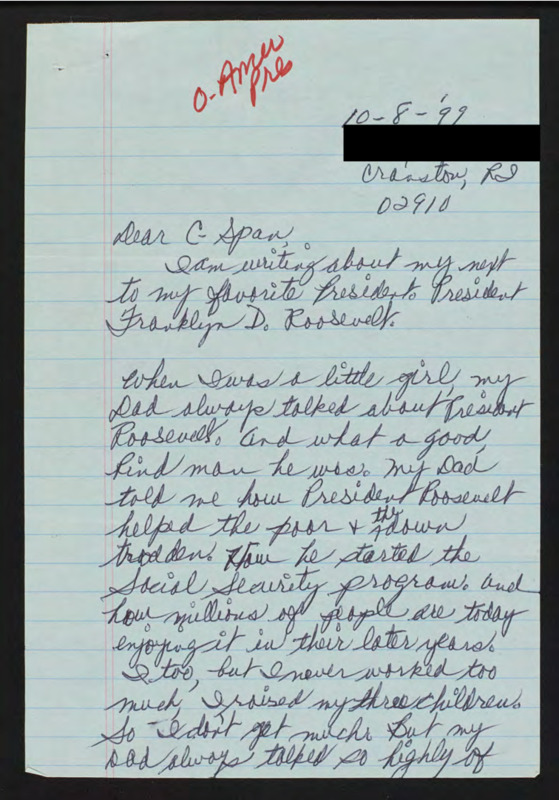 O-Amer
Pres
10-8-'99
Cranston, RI
02910
Dear C-Span,
I am writing about my next
to my favorite President. President
Franklyn D. Roosevelt.
When I was a little girl, my
Dad always talked about President
Roosevelt. And what a good,
kind man he was. My Dad
told me how President Roosevelt
helped the poor & the down
trodden. How he started the
Social Security program. And
how millions of people are today
enjoying it in their later years.
I too, but I never worked too
much, I raised my three children.
So I don't get much. But my
Dad always talked so highly of